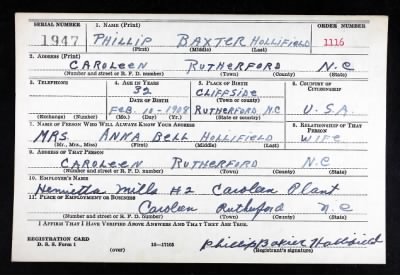 SERIAL NUMBER 1. NAME (Print) ORDER NUMBER
1947 PHILLIP BAXTER HOLLIFIELD 1116
(First) (Middle) (Last)
2. ADDRESS (Print)
CAROLEEN RUTHERFORD N.C
(Number and street or R. F. D. number) (Town) (County) (State)
3. TELEPHONE 4. AGE IN YEARS 5. PLACE OF BIRTH 6. COUNTRY OF CITIZENSHIP
32 CLIFFSIDE
DATE OF BIRTH (Town or county)
FEB. 10-1908 RUTHERFORD N.C U.S.A.
(Exchange) (Number) (Mo.) (Day) (Yr.) (State or country)
7. NAME OF PERSON WHO WILL ALWAYS KNOW YOUR ADDRESS 8. RELATIONSHIP OF THAT PERSON
MRS. ANNA BELL HOLLIFIELD WIFE
(Mr., Mrs., Miss) (First) (Middle) (Last)
9. ADDRESS OF THAT PERSON
CAROLEEN RUTHERFORD N.C
(Number and street or R. F. D. number) (Town) (County) (State)
10. EMPLOYER'S NAME
Henrietta Mills #2 Caroleen Plant
11. PLACE OF EMPLOYMENT OR BUSINESS
Caroleen Rutherford N.C
(Number and street or R. F. D. number) (Town) (County) (State)
I AFFIRM THAT I HAVE VERIFIED ABOVE ANSWERS AND THAT THEY ARE TRUE.
REGISTRATION CARD
D. S. S. Form 1 (over) 16—17105 Phillip Baxter Hollifield
(Registrant's signature)